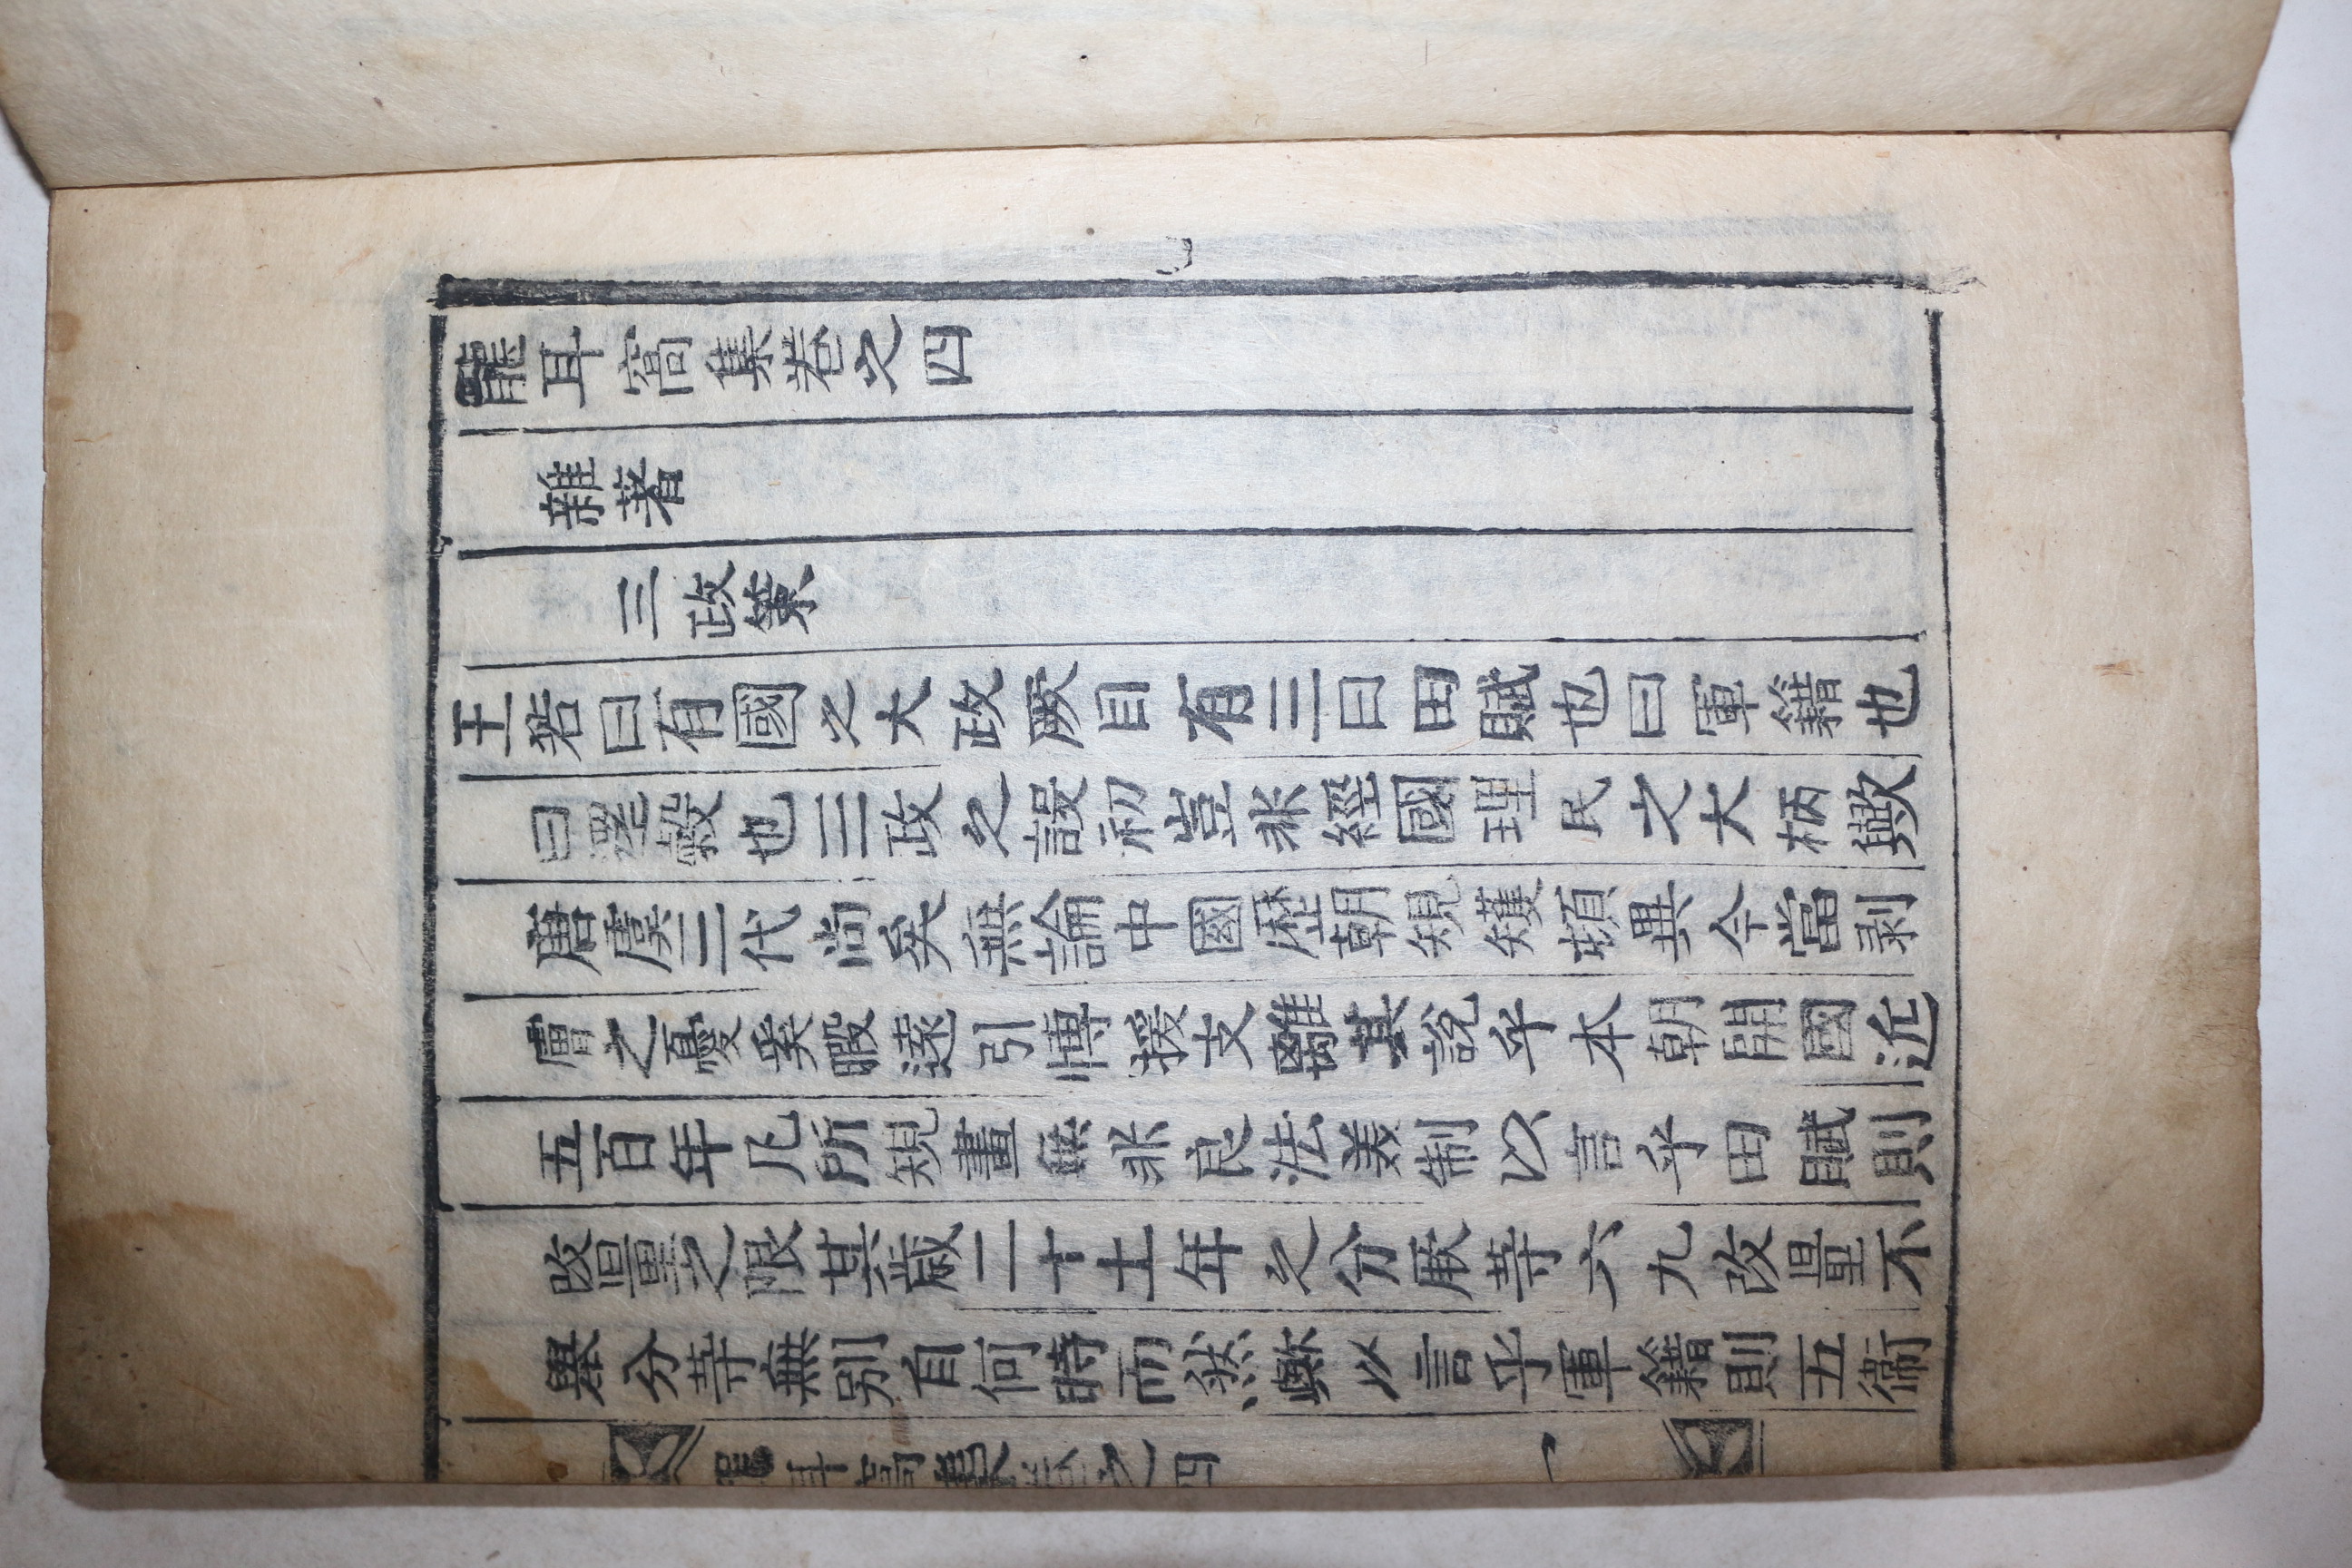 龍耳窩集卷之四
雜著
三政策
王若曰有國之大政厥目有三曰田賦也曰軍籍也
曰還穀也三政之設初豈非經國理民之大柄歟
唐虞三代尚矣無論中國歷朝規矱頓異今當剥
膚之憂奚暇遠引博援支離其說乎本朝開國近
五百年凡所規畫無非良法美制以言乎田賦則
改量之限其歲二十土年之分厥等六九改量不
擧分等無別自何時而然歟以言乎軍籍則五衛
龍耳窩集卷之四 一